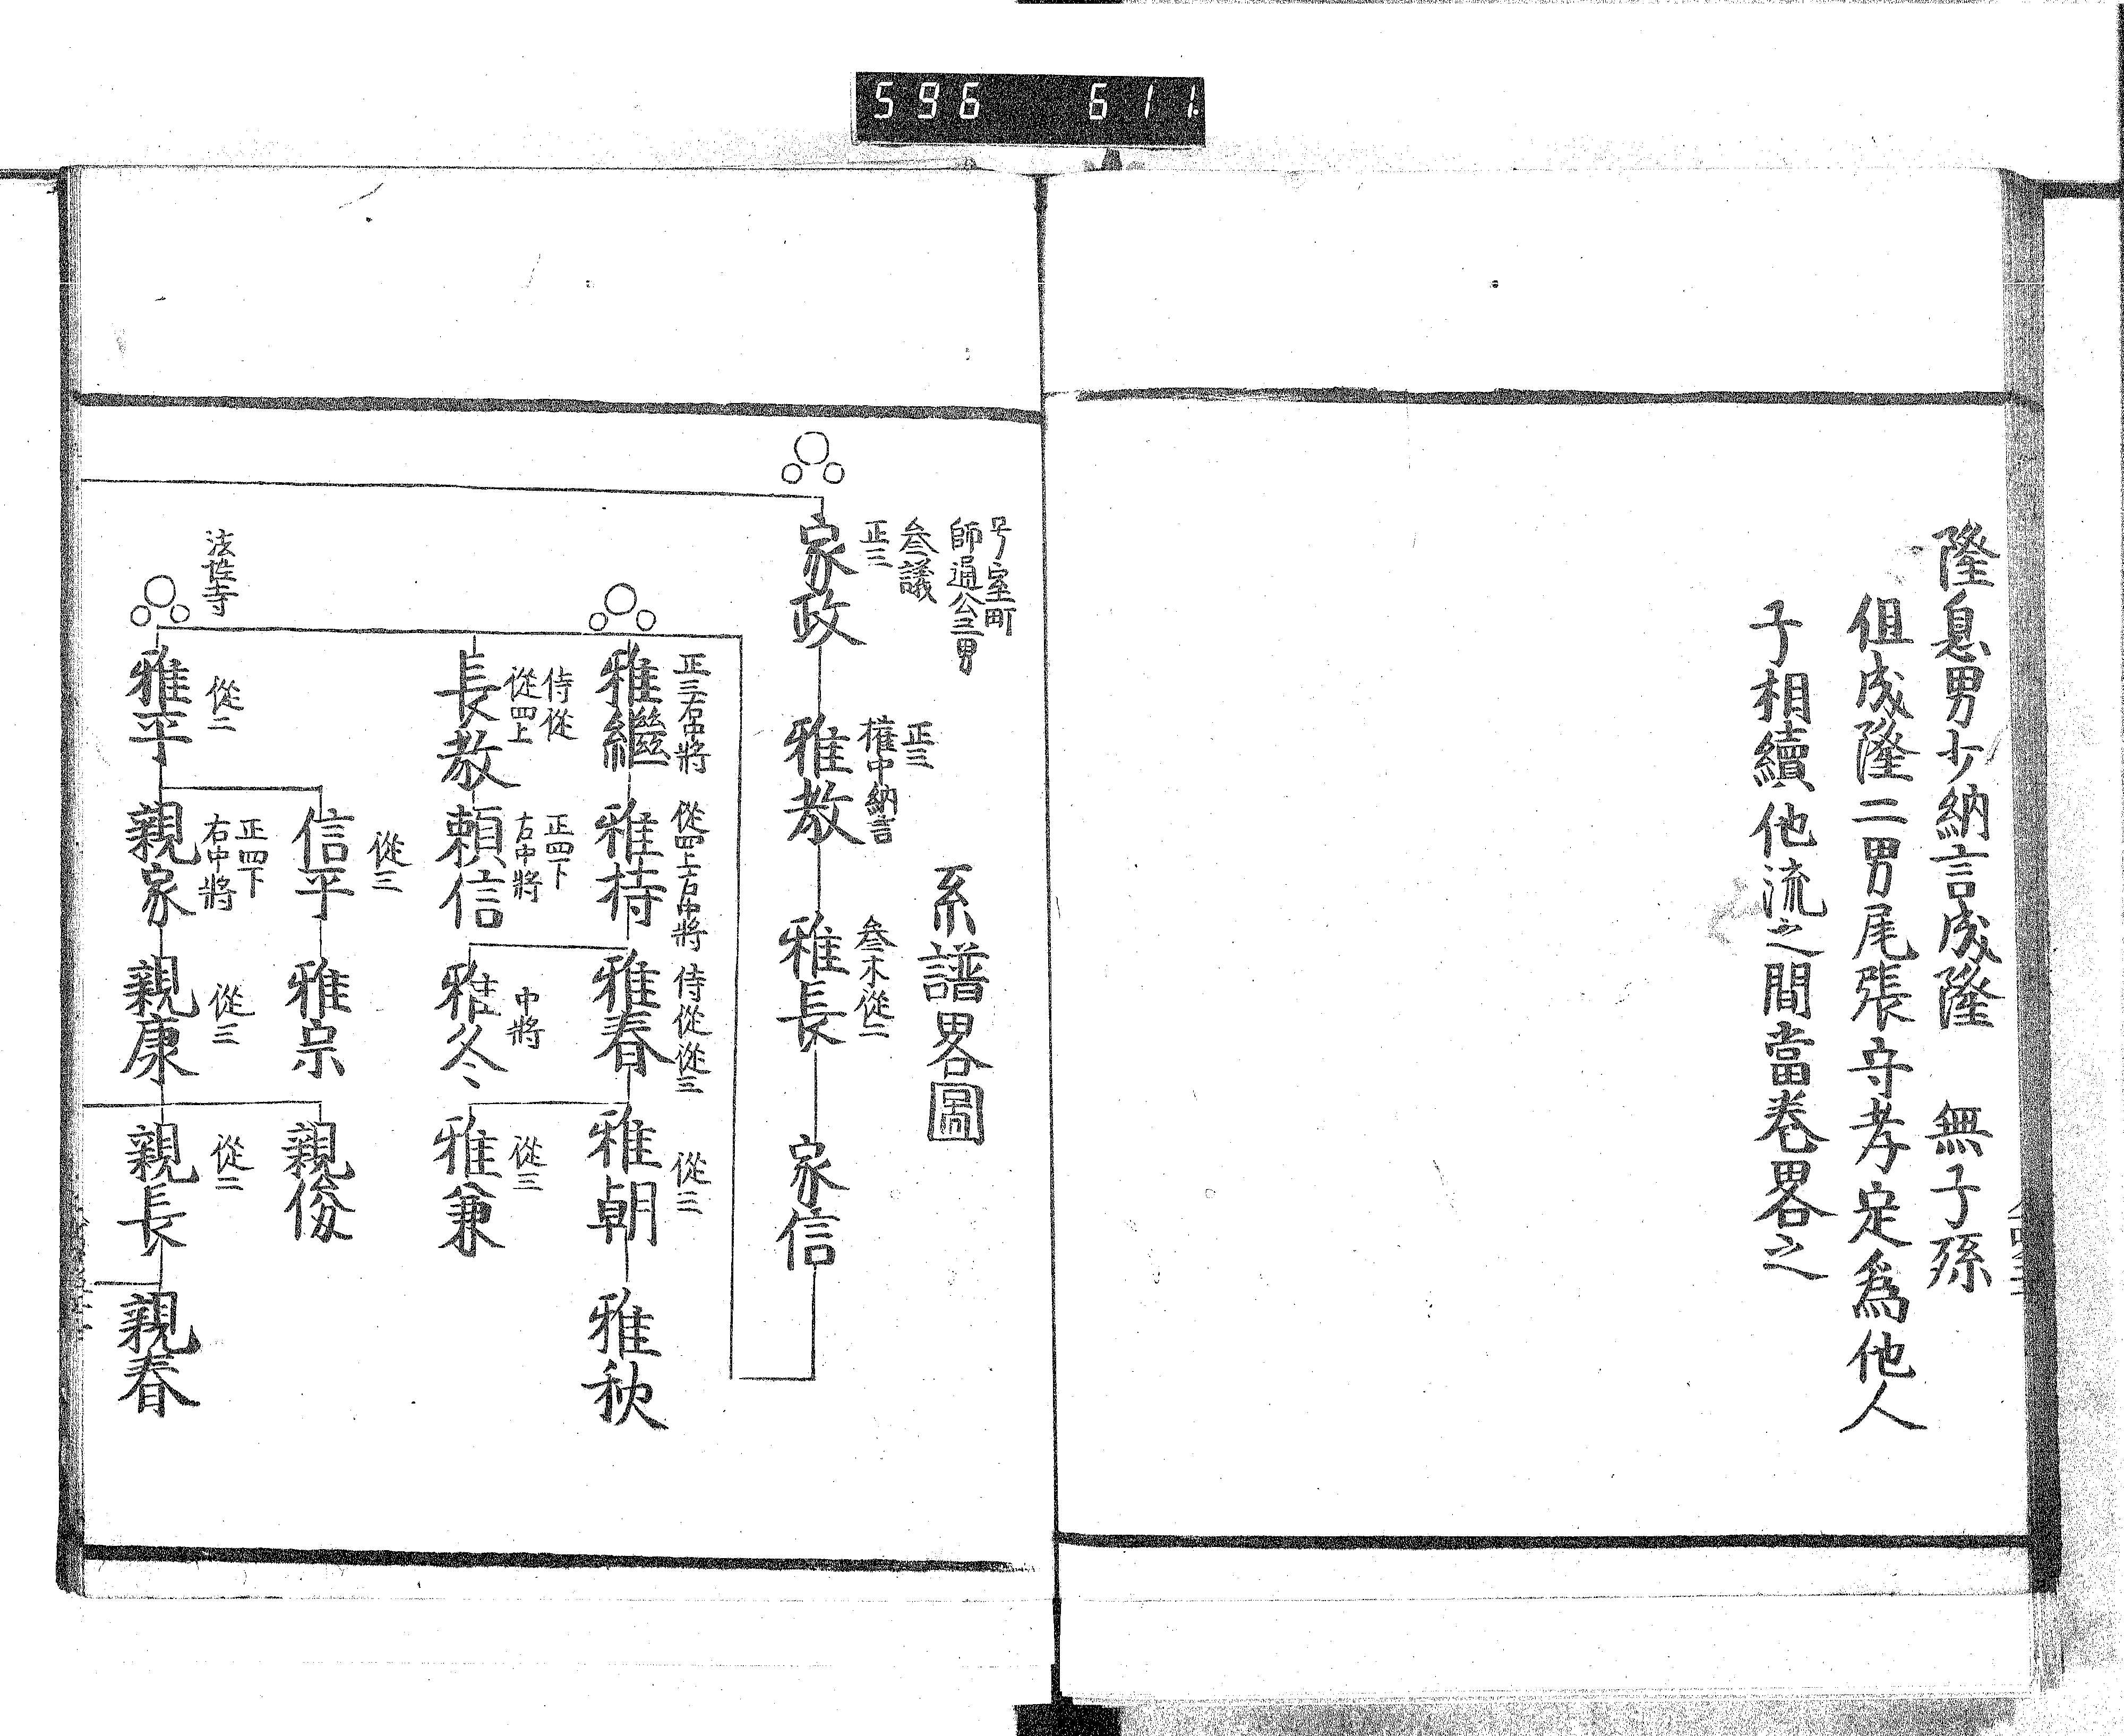 596 611
隆息男少納言成隆 無子孫
但成隆二男尾張守孝定為他人
子相續他流之間當巻畧之
系譜畧圖
号室町
師通公三男
叅議
正三
家政
正三
權中納言
雅教
叅木從二
雅長
家信
正三右中將
雅繼
從四上右中將
雅持
侍從從三
雅春
從三
雅朝
雅秋
侍從
從四上
長教
正四下
右中將
頼信
中將
雅冬
從三
雅兼
從三
信平
雅宗
親俊
法性寺
從二
雅平
正四下
右中將
親家
從三
親康
從二
親長
親春